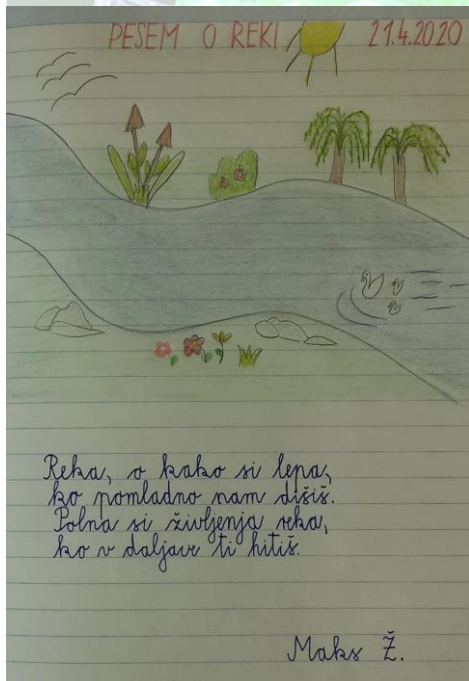 PESEM O REKI 21.4.2020
Reka, o kako si lepa,
ko pomladno nam dišiš.
Polna si življenja reka,
ko v daljave ti hitiš.
Maks Ž.